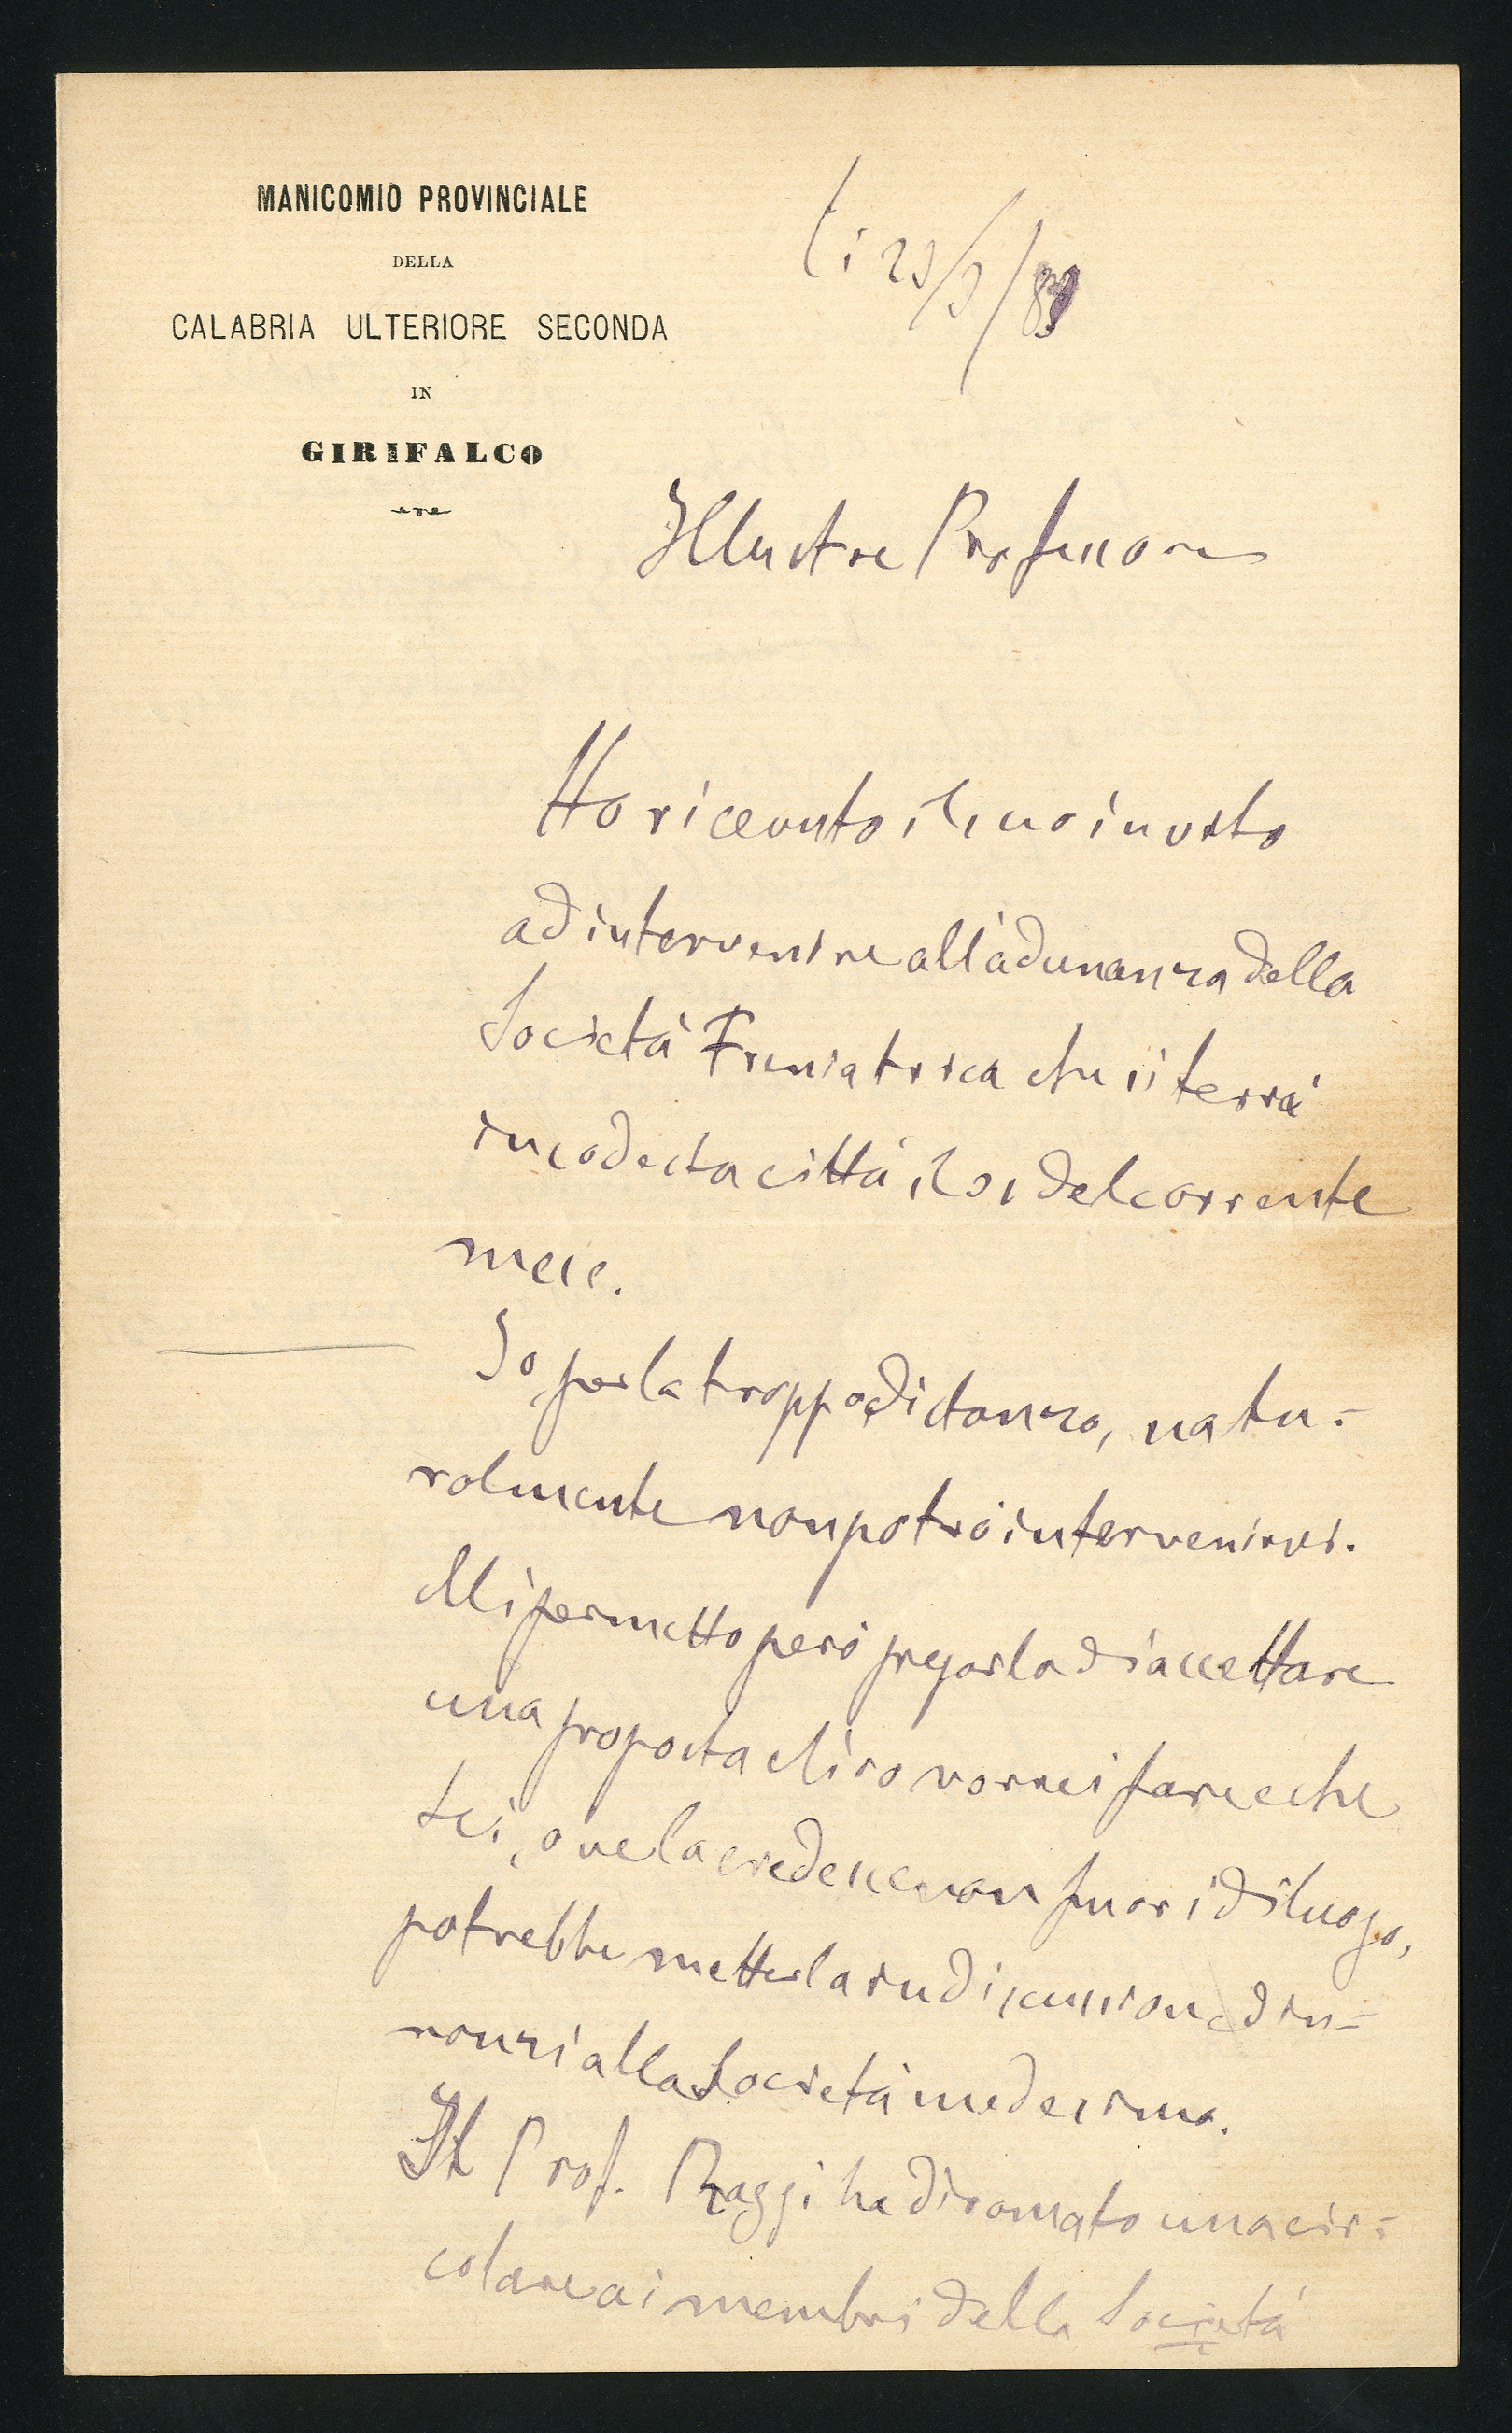 MANICOMIO PROVINCIALE
DELLA
CALABRIA ULTERIORE SECONDA
IN
GIRIFALCO
li 23/3/89
Illustre Professore
Ho ricevuto il suo invito
ad intervenire all'adunanza della
Società Freniatrica che si terrà
in codesta città il 31 del corrente
mese.
Io, per la troppo distanza, natu=
ralmente non potrò intervenirvi.
Mi permetto però pregarla di accettare
una proposta ch'io vorrei fare e che
Lei, ove la credesse non fuori di luogo,
potrebbe metterla in discussione din=
nanzi alla Società medesima.
Il Prof. Raggi ha diramato una cir=
colare ai membri della Società